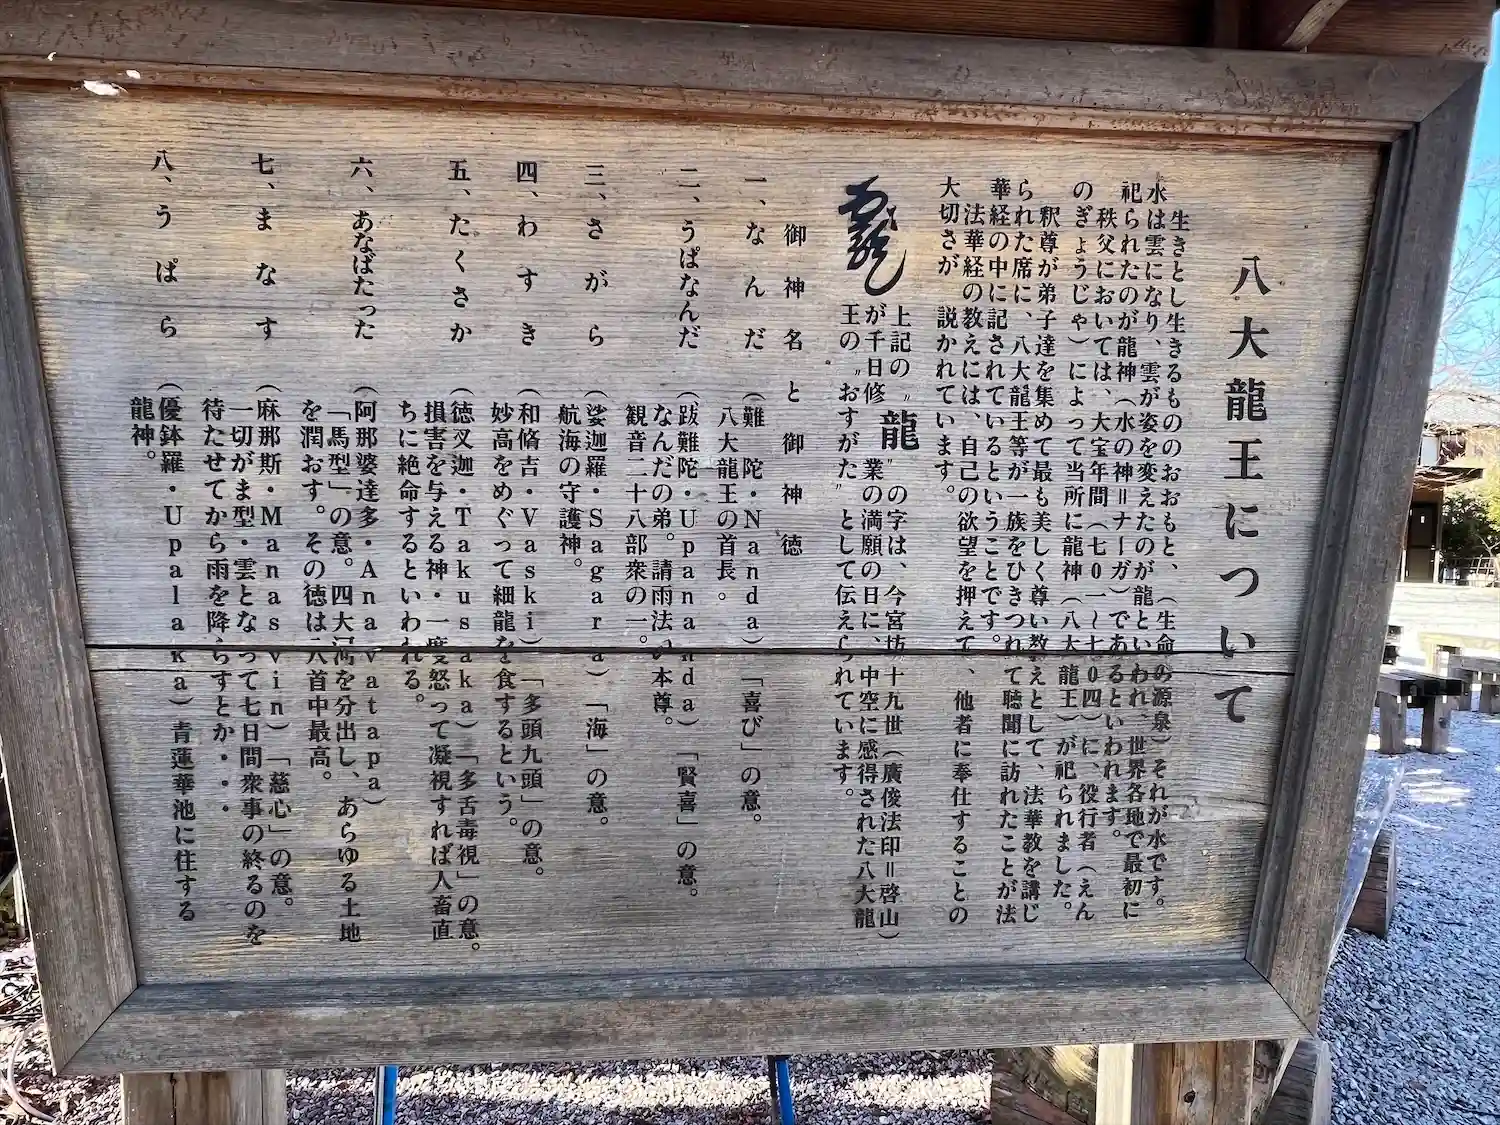 八大龍王について
生きとし生きるもののおおもと、（生命の源泉）それが水です。
水は雲になり、雲が姿を変えたのが龍といわれ、世界各地で最初に
祀られたのが龍神（水の神＝ナーガ）であるといわれます。
秩父においては、大宝年間（七０一～七０四）に、役行者（えん
のぎょうじゃ）によって当所に龍神（八大龍王）が祀られました。
釈尊が弟子達を集めて最も美しく尊い教えとして、法華教を講じ
られた席に、八大龍王等が一族をひきつれて聴聞に訪れたことが法
華経の中に記されているということです。
法華経の教えには、自己の欲望を押えて、他者に奉仕することの
大切さが 説かれています。
龍
上記の〝龍〟の字は、今宮坊十九世（廣俊法印＝啓山）
が千日修業の満願の日に、中空に感得された八大龍
王の〝おすがた〟として伝えられています。
御神名と御神徳
一、なんだ （難 陀・Nanda）「喜び」の意。
八大龍王の首長。
二、うぱなんだ （跋難陀・Upananda）「賢喜」の意。
なんだの弟。請雨法の本尊。
観音二十八部衆の一。
三、さがら （娑迦羅・Sagara）「海」の意。
航海の守護神。
四、わすき （和脩吉・Vaski）「多頭九頭」の意。
妙高をめぐって細龍を食するという。
五、たくさか （徳叉迦・Takusaka）「多舌毒視」の意。
損害を与える神・一度怒って凝視すれば人畜直
ちに絶命するといわれる。
六、あなばたった （阿那婆達多・Anavatapa）
「馬型」の意。四大河を分出し、あらゆる土地
を潤おす。その徳は八首中最高。
七、まなす （麻那斯・Manasvin）「慈心」の意。
一切がま型・雲となって七日間衆事の終るのを
待たせてから雨を降らすとか・・・
八、うぱら （優鉢羅・Upalaka）青蓮華池に住する
龍神。